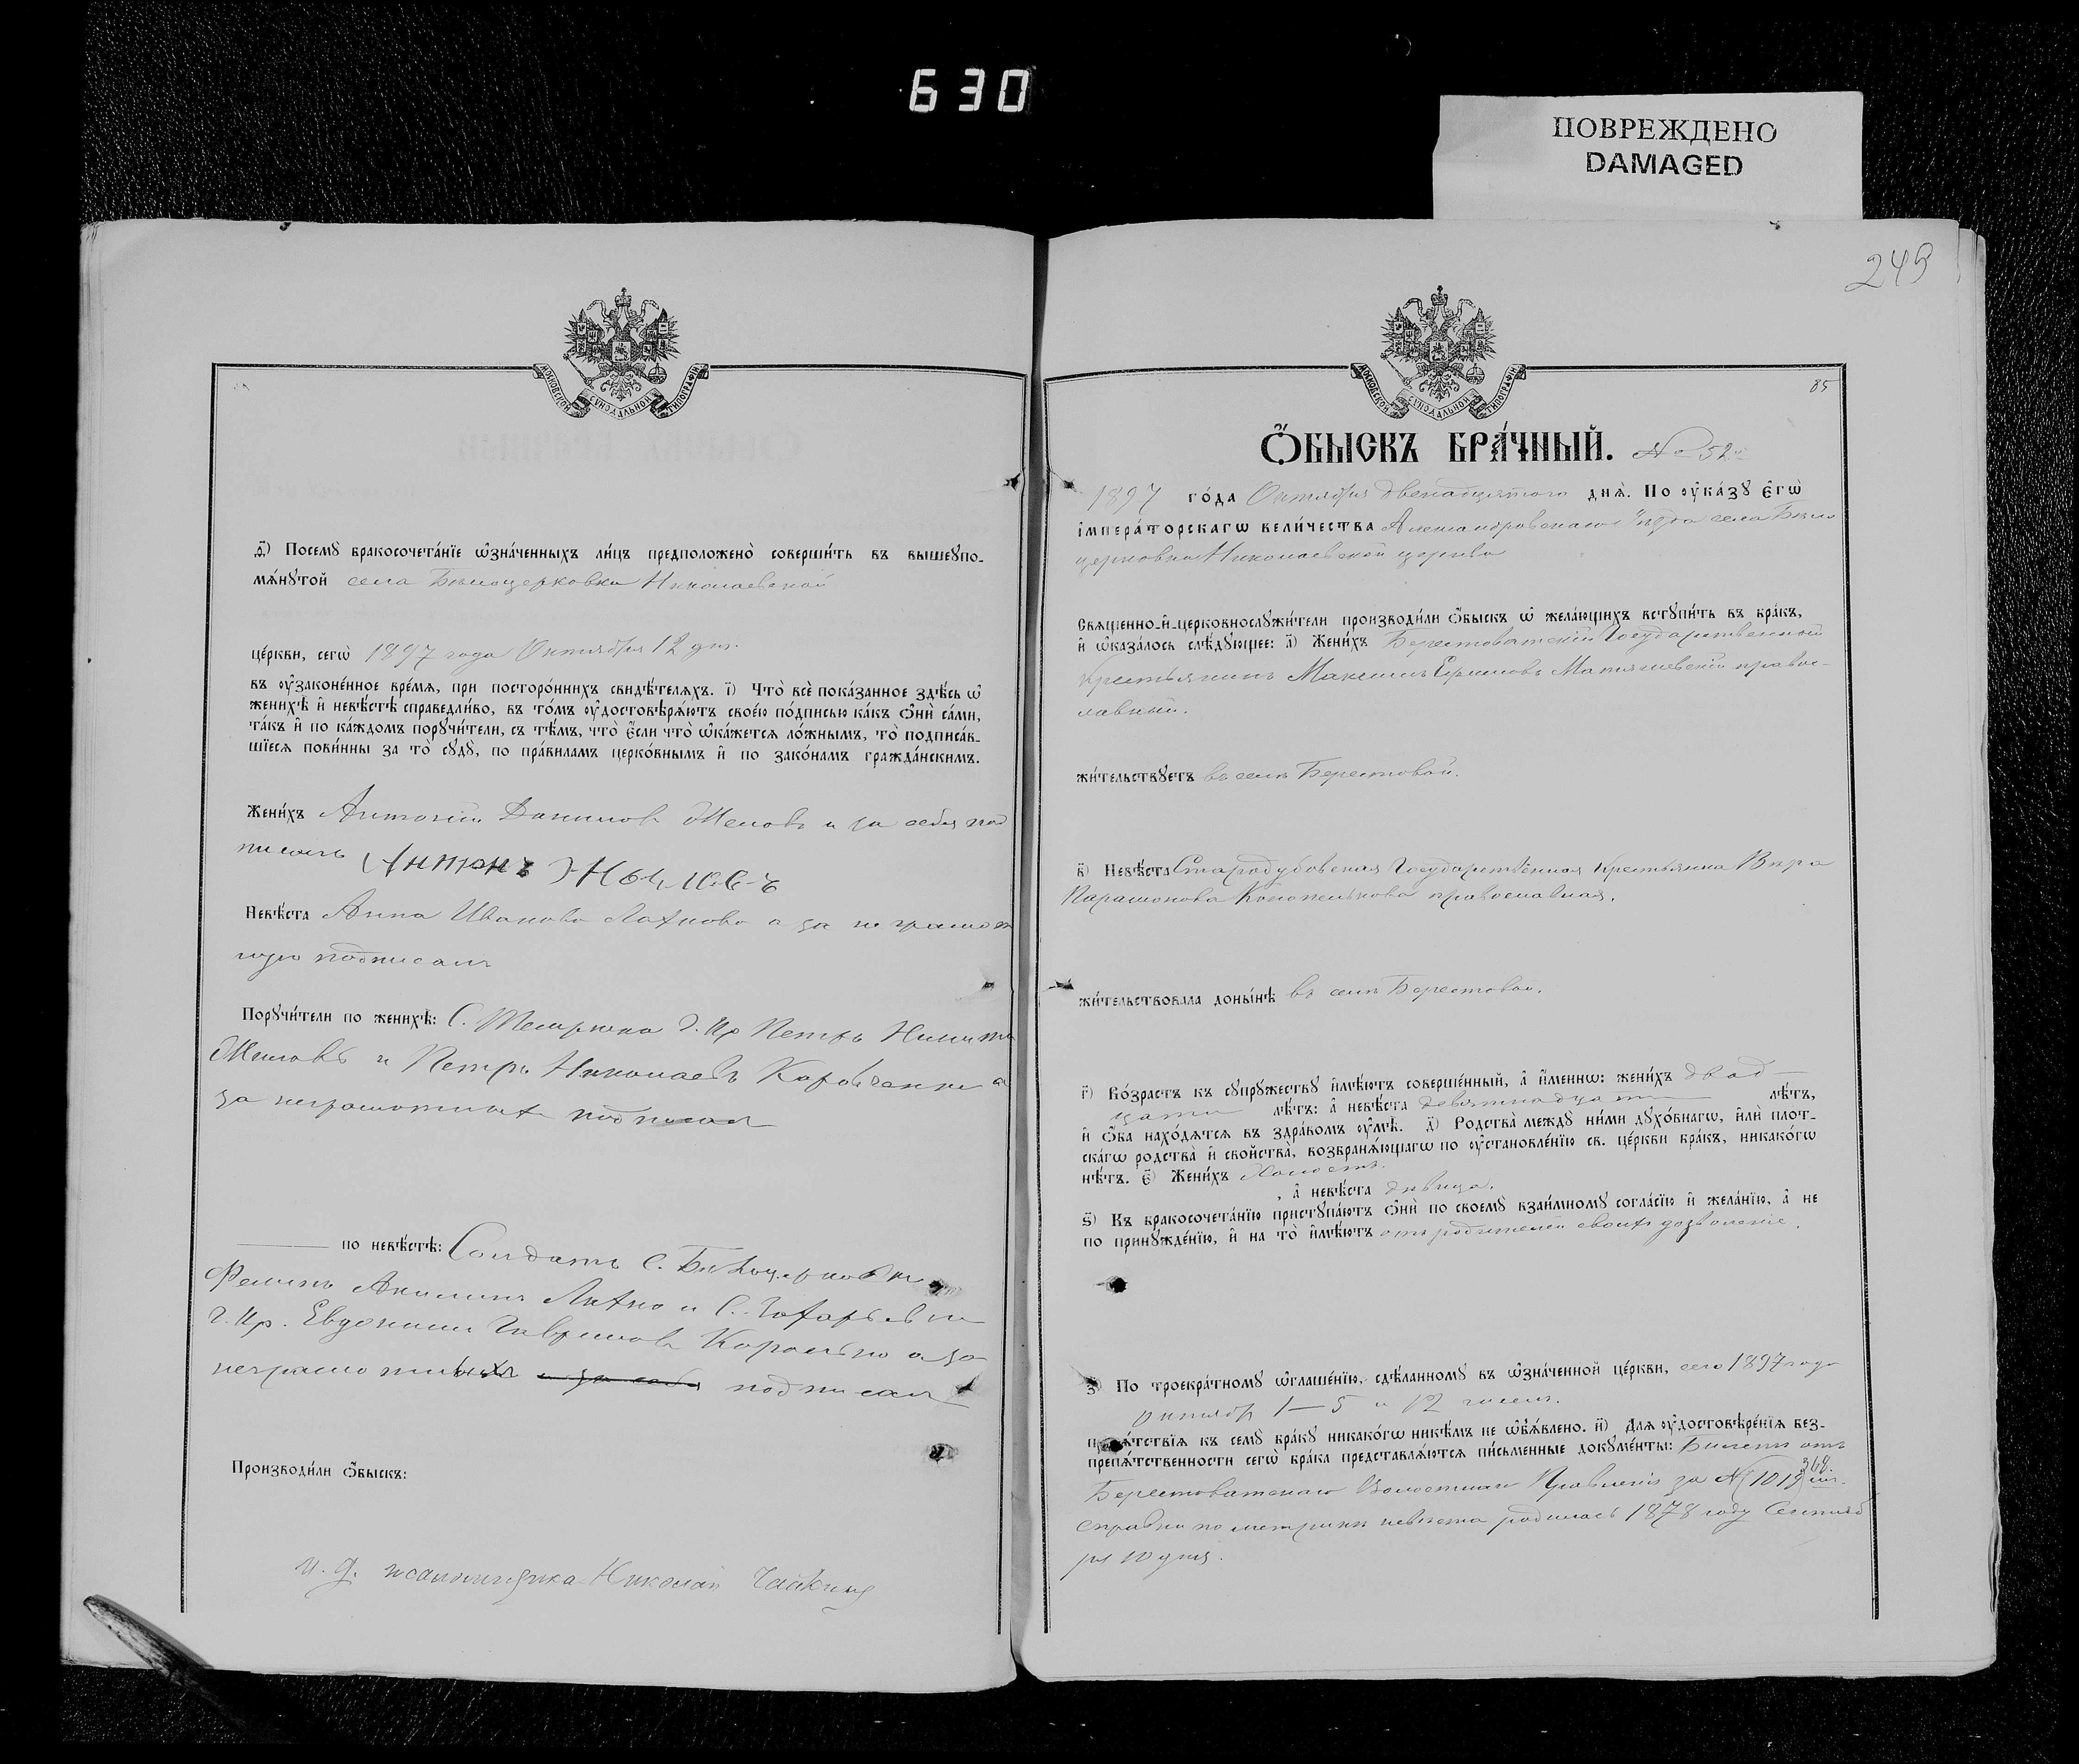 630
ПОВРЕЖДЕНО
DAMAGED
МОСКОВСКОЙ СѴНОДАЛЬНОЙ ТИПОГРАФІИ
ѳ҃) Посемꙋ бракосочета́нїе ѡ҆зна́ченныхъ ли́цъ предположено̀ соверши́ть въ вышеꙋпо-
мѧ́нꙋтой села Бѣлоцерковки Николаевской
це́ркви, сегѡ̀ 1897 года Октября 12 дня.
въ ᲂу҆законе́нное вре́мѧ, при посторо́ннихъ свидѣ́телѧхъ. і҃) Что̀ всѐ пока́занное здѣ́сь ѡ҆
женихѣ̀ и҆ невѣ́стѣ справедли́во, въ то́мъ ᲂу҆достовѣрѧ́ютъ свое́ю по́дписью ка́къ ѻ҆нѝ са́ми,
та́къ и҆ по ка́ждомъ порꙋчи́тели, съ тѣ́мъ, что̀ є҆́сли что̀ ѡ҆ка́жетсѧ ло́жнымъ, то̀ подписа́в-
шїесѧ пови́нны за то̀ сꙋдꙋ̀, по пра́виламъ церко́внымъ и҆ по зако́намъ гражда́нскимъ.
Жени́хъ Антоній Данилов и за себя под
писалъ Антонъ
Невѣ́ста Анна Иванова Лахнова а за не грамот
ную подписалъ
Порꙋчи́тели по женихѣ̀: С. Г. Кр Петръ Никит
и Петръ Николаевъ а
за неграмотныхъ подписал
по невѣ́стѣ: Солдатъ С. Бѣлоцерковки
Лахно и С. Захарьевки
Г. Кр. Евдокимъ Гавриловъ Королько а за
неграмотныхъ и за себя подписалъ
Производи́ли ѻ҆́быскъ:
и. д. псаломщика Николай Чайкинъ
249
МОСКОВСКОЙ СѴНОДАЛЬНОЙ ТИПОГРАФІИ
85
Ѻ҆́БЫСКЪ БРА́ЧНЫЙ. № 52
1897 го́да Октября двенадцатого днѧ̀. По ᲂу҆ка́зꙋ є҆гѡ̀
і҆мпера́торскагѡ вели́чества Александровскаго уѣзда села Бѣло
церковки Николаевской церкви
Свѧще́нно-и҆-церковнослꙋжи́тели производи́ли ѻ҆́быскъ ѡ҆ жела́ющихъ встꙋпи́ть въ бра́къ,
и҆ ѡ҆каза́лось слѣ́дꙋющее: а҃) Жени́хъ Берестоватскій Государственный
Крестьянинъ Максимъ Ефимовъ правос-
лавный.
жи́тельствꙋетъ въ селѣ Берестовой.
в҃) Невѣ́ста Стародубовская Государственная Крестьянка Вѣра
Парамонова Конопелькова православная.
жи́тельствовала доны́нѣ въ селѣ Берестовой.
г҃) Во́зрастъ къ сꙋпрꙋ́жествꙋ и҆мѣ́ютъ соверше́нный, а҆ и҆́меннѡ: жени́хъ двад-
цати лѣ́тъ: а҆ невѣ́ста девятнадцати лѣ́тъ,
и҆ ѻ҆́ба нахо́дѧтсѧ въ здра́вомъ ᲂу҆мѣ̀. д҃) Родства̀ междꙋ̀ ни́ми дꙋхо́внагѡ, и҆лѝ плот-
ска́гѡ родства̀ и҆ сво́йства, возбранѧ́ющагѡ по ᲂу҆становле́нїю св. це́ркви бра́къ, никако́гѡ
нѣ́тъ. є҃) Жени́хъ Холостъ.
, а҆ невѣ́ста дѣвица.
ѕ҃) Къ бракосочета́нїю пристꙋпа́ютъ ѻ҆нѝ по своемꙋ̀ взаи́мномꙋ согла́сїю и҆ жела́нїю, а҆ не
по принꙋжде́нїю, и҆ на то̀ и҆мѣ́ютъ отъ родителей своихъ дозволеніе.
з҃) По троекра́тномꙋ ѡ҆глаше́нїю, сдѣ́ланномꙋ въ ѡ҆зна́ченной це́ркви, сего 1897 года
октябр 1-5 и 12 чиселъ.
препѧ́тствїѧ къ семꙋ̀ бра́кꙋ никако́гѡ никѣ́мъ не ѡ҆б̾ѧ́влено. и҃) Длѧ ᲂу҆достовѣре́нїѧ без-
препѧ́тственности сегѡ̀ бра́ка представлѧ́ютсѧ пи́сьменные докꙋме́нты: Билетъ отъ
Берестоватскаго Волостнаго Правленія за №
справки по метрикѣ невѣста родилась 1878 году Сентяб
ря 10 дня.